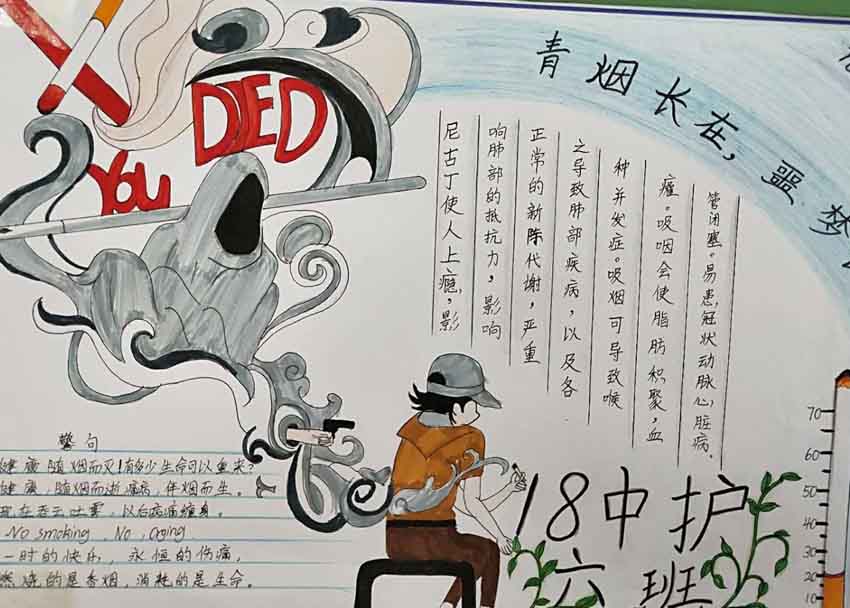 YOU DIED
青烟长在，噩梦
尼古丁使人上瘾，影
响肺部的抵抗力，影响
正常的新陈代谢，严重
之导致肺部疾病，以及各
种并发症。吸烟可导致喉
瘤。吸咽会使脂肪积聚，血
管闭塞。易患冠状动脉心脏病.
警句
健康随烟而灭!有多少生命可以重来?
健康,随烟而逝 痛病,伴烟而生。
现在吞云吐雾,以后病痛缠身。
No smoking, No,
一时的快乐,永恒的伤痛,
燃烧的是香烟,消耗的是生命。
18中护
六班
70
50
40
30
20
10